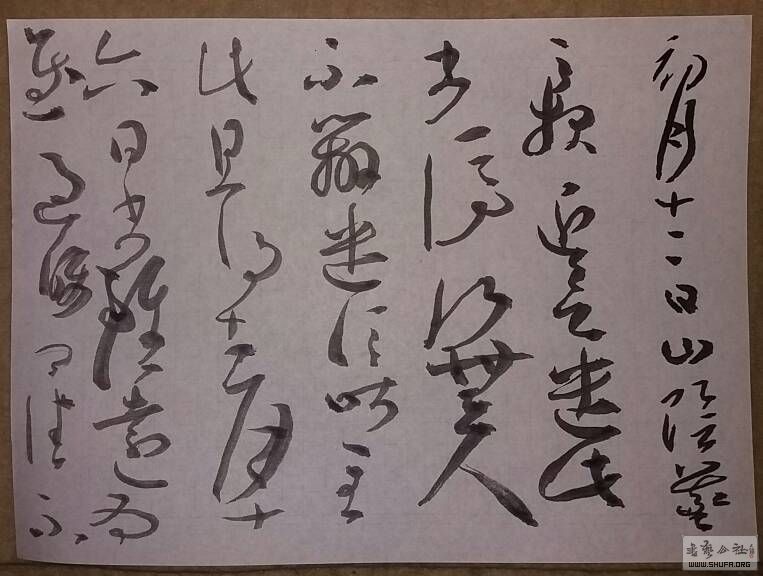 初月十二日山陰羲
之報近欲遣此
書停行無人
不辦遣信昨至
此且得去月十
六日書雖遠為
慰過囑卿佳不
書藝公社
WWW.SHUFA.ORG